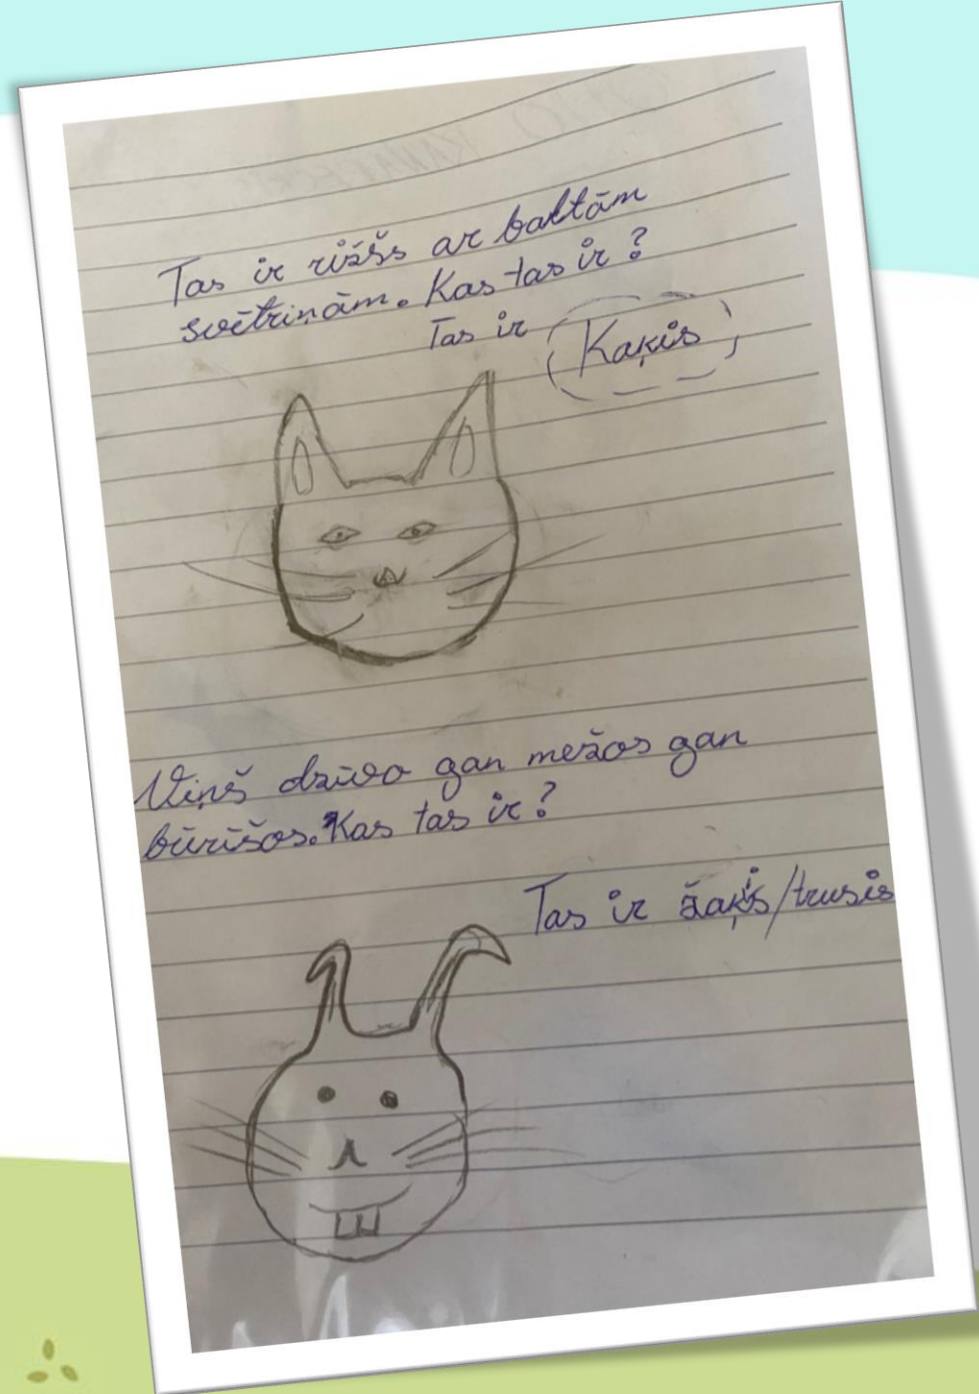 Tas ir rižšs ar baltām
svētriņām. Kas tas ir?
Tas ir Kaķis
Viņš dzīvo gan mežos gan
būrīšos. Kas tas ir?
Tas ir žaķis/trusis